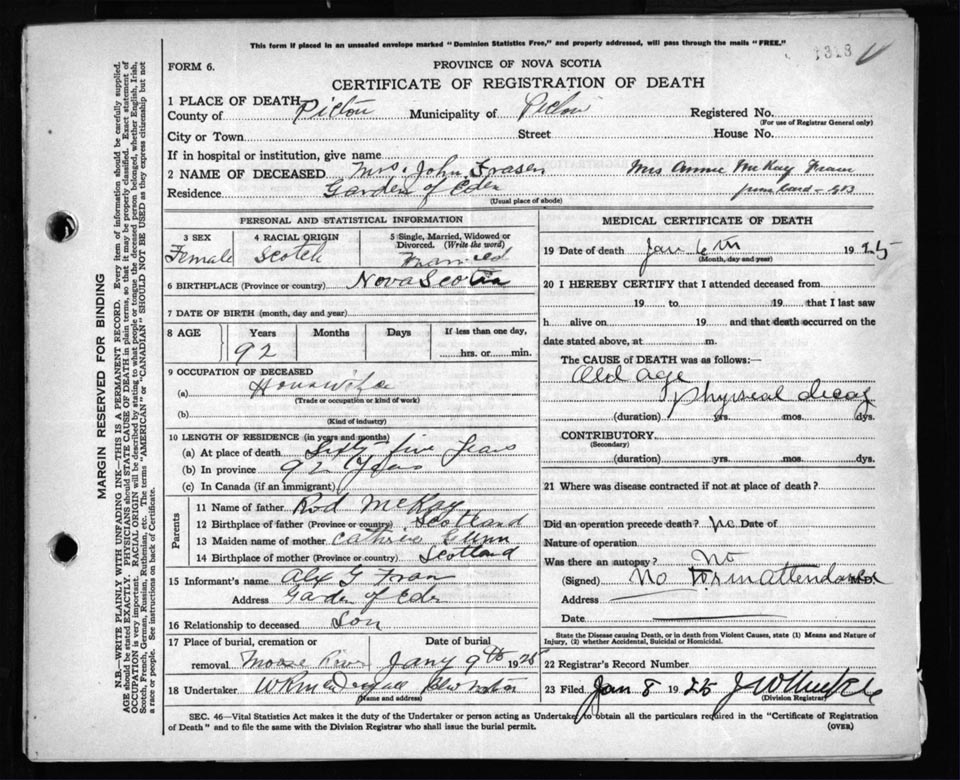 This form if placed in an unsealed envelope marked "Dominion Statistics Free," and properly addressed, will pass through the mails "FREE."
1313
FORM 6.
PROVINCE OF NOVA SCOTIA
CERTIFICATE OF REGISTRATION OF DEATH
1 PLACE OF DEATH
County of Pictou Municipality of Pictou Registered No.
(For use of Registrar General only)
City or Town Street House No.
If in hospital or institution, give name
2 NAME OF DECEASED Mrs John Fraser Mrs Annie McKay
Residence Garden of Eden
(Usual place of abode)
PERSONAL AND STATISTICAL INFORMATION
3 SEX 4 RACIAL ORIGIN 5 Single, Married, Widowed or Divorced. (Write the word)
Female Scotch Married
6 BIRTHPLACE (Province or country) Nova Scotia
7 DATE OF BIRTH (month, day and year)
8 AGE Years Months Days If less than one day,
92 hrs. or min.
9 OCCUPATION OF DECEASED
(a) Housewife
(Trade or occupation or kind of work)
(b)
(Kind of industry)
10 LENGTH OF RESIDENCE (in years and months)
(a) At place of death Sixty five years
(b) In province 92 Years
(c) In Canada (if an immigrant)
Parents
11 Name of father Rod McKay
12 Birthplace of father (Province or country) Scotland
13 Maiden name of mother Gunn
14 Birthplace of mother (Province or Country) Scotland
15 Informant's name Alex G
Address Garden of Eden
16 Relationship to deceased Son
17 Place of burial, cremation or Date of burial
removal Moose River Jany 9th 1925
18 Undertaker
(Name and address)
MEDICAL CERTIFICATE OF DEATH
19 Date of death Jan 6th 1925
(Month, day and year)
20 I HEREBY CERTIFY that I attended deceased from
19 to 19 that I last saw
h alive on 19 and that death occurred on the
date stated above, at m.
The CAUSE of DEATH was as follows:
Old age
physical decay
(duration) yrs. mos. dys.
CONTRIBUTORY
(Secondary)
(duration) yrs. mos. dys.
21 Where was disease contracted if not at place of death?
Did an operation precede death? no Date of
Nature of operation
Was there an autopsy? No
(Signed) No Dr in attendance M.D.
Address
Date
State the Disease causing Death, or in death from Violent Causes, state (1) Means and Nature of
Injury, (2) whether Accidental, Suicidal or Homicidal.
22 Registrar's Record Number
23 Filed Jan 8 1925
(Division Registrar)
SEC. 46—Vital Statistics Act makes it the duty of the Undertaker or person acting as Undertaker to obtain all the particulars required in the "Certificate of Registration
of Death" and to file the same with the Division Registrar who shall issue the burial permit. (OVER)
MARGIN RESERVED FOR BINDING
N.B.—WRITE PLAINLY WITH UNFADING INK—THIS IS A PERMANENT RECORD. Every item of information should be carefully supplied.
AGE should be stated EXACTLY. PHYSICIANS should STATE CAUSE OF DEATH in plain terms, so that it may be properly classified. Exact statement of
OCCUPATION is very important. RACIAL ORIGIN will be described by stating to what people or tongue the deceased person belonged, whether English, Irish,
Scotch, French, German, Russian, Ruthenian, etc. The terms "AMERICAN" or "CANADIAN" SHOULD NOT BE USED as they express citizenship but not
a race or people. See instructions on back of Certificate.